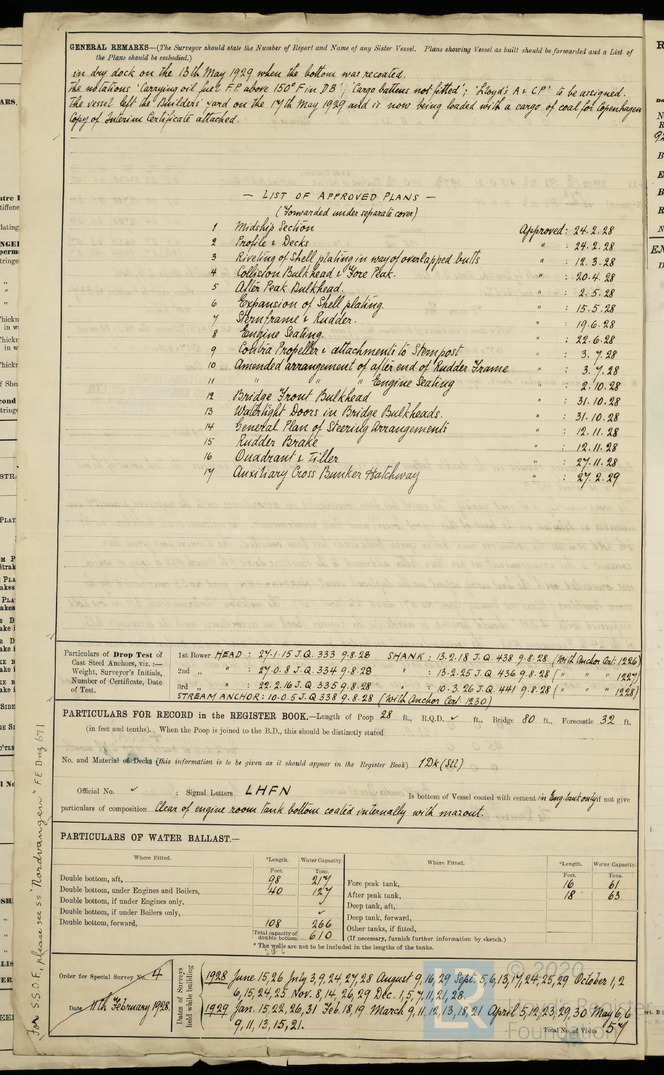 GENERAL REMARKS—(The Surveyor should state the Number of Report and Name of any Sister Vessel. Plans showing Vessel as built should be forwarded and a List of
the Plans should be embodied.)
in dry dock on the 13th May 1929 when the bottom was recoated.
The notations 'Carrying oil fuel F.P. above 150°F in DB'; 'Cargo battens not fitted'; 'Lloyd's A & CP' to be assigned.
The vessel left the Builders' yard on the 17th May 1929 and is now being loaded with a cargo of coal for Copenhagen
Copy of Interim Certificate attached.
— LIST OF APPROVED PLANS —
(Forwarded under separate cover)
1 Midship Section Approved: 24.2.28
2 Profile & Decks " : 24.2.28
3 Riveting of Shell plating in way of overlapped butts " : 12.3.28
4 Collision Bulkhead & Fore Peak. " : 20.4.28
5 After Peak Bulkhead. " : 2.5.28
6 Expansion of Shell plating. " : 15.5.28
7 Sternframe & Rudder. " : 19.6.28
8 Engine Seating. " : 22.6.28
9 Contra Propeller & attachments to Sternpost " : 3.7.28
10 Amended arrangement of after end of Rudder Frame " : 3.7.28
11 " " " Engine Seating " : 2.10.28
12 Bridge Front Bulkhead " : 31.10.28
13 Watertight Doors in Bridge Bulkheads. " : 31.10.28
14 General Plan of Steering Arrangements " : 12.11.28
15 Rudder Brake " : 12.11.28
16 Quadrant & Tiller " : 27.11.28
17 Auxiliary Cross Bunker Hatchway " : 27.2.29
Particulars of Drop Test of Cast Steel Anchors, viz.:— Weight, Surveyor's Initials, Number of Certificate, Date of Test.
1st Bower HEAD : 27-1-15 J.Q. 333 9.8.28 SHANK : 13.2.18 J.Q. 438 9.8.28 (With Anchor Cert. 1226)
2nd " " : 27.0.8 J.Q. 334 9.8.28 " : 13-2-25 J.Q. 436 9.8.28 ( " " " 1227)
3rd " " : 22.2.16 J.Q. 335 9.8.28 " : 10.3.26 J.Q. 441 9.8.28 ( " " " 1228)
STREAM ANCHOR: 10.0.5 J.Q. 338 9.8.28 (With Anchor Cert. 1230)
PARTICULARS FOR RECORD in the REGISTER BOOK.—Length of Poop 28 ft., R.Q.D. ✓ ft., Bridge 80 ft., Forecastle 32 ft.
(in feet and tenths). When the Poop is joined to the B.D., this should be distinctly stated
No. and Material of Decks (this information is to be given as it should appear in the Register Book) 1Dk (Stl)
Official No. ✓ : Signal Letters LHFN Is bottom of Vessel coated with cement in Eng. tank only if not give
particulars of composition Clear of engine room tank bottom coated internally with mazout.
PARTICULARS OF WATER BALLAST.—
Where Fitted. *Length. Water Capacity. Where Fitted. *Length. Water Capacity.
Feet. Tons. Feet. Tons.
Double bottom, aft, 98 217 Fore peak tank, 16 61
Double bottom, under Engines and Boilers, 40 127 After peak tank, 18 63
Double bottom, if under Engines only, Deep tank, aft,
Double bottom, if under Boilers only, ✓ Deep tank, forward,
Double bottom, forward, 108 266 Other tanks, if fitted,
Total capacity of double bottom 610 (If necessary, furnish further information by sketch.)
* The wells are not to be included in the lengths of the tanks.
Order for Special Survey No. 4
Date 11th February 1928.
Dates of Surveys held while building
1928 June 15, 26. July 3, 9, 24, 27, 28 August 9, 16, 29 Sept. 5, 6, 13, 17, 24, 25, 29 October 1, 2
6, 15, 24, 25 Nov. 8, 14, 26, 29 Dec. 1, 5, 7, 11, 21, 28.
1929 Jan. 15, 22, 26, 31 Feb. 18, 19 March 9, 11, 12, 13, 18, 21 April 5, 12, 23, 29, 30 May 6, 6
9, 11, 13, 15, 21.
Total No. of Visits 57
For S.S.O.F., please see ss "Nordvangen" F.E. Dmg 671
© 2020
Lloyd's Register
Foundation